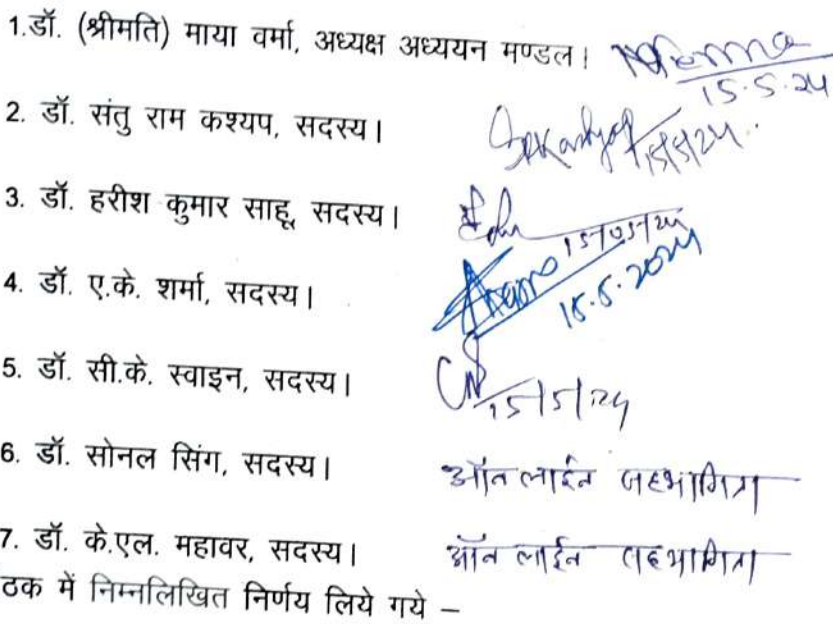 1.डॉ. (श्रीमति) माया वर्मा, अध्यक्ष अध्ययन मण्डल।
15.5.24
2. डॉ. संतु राम कश्यप, सदस्य।
15/5/24
3. डॉ. हरीश कुमार साहू, सदस्य।
15/05/24
4. डॉ. ए.के. शर्मा, सदस्य।
15.5.2024
5. डॉ. सी.के. स्वाइन, सदस्य।
15/5/24
6. डॉ. सोनल सिंग, सदस्य। ऑनलाईन सहभागिता
7. डॉ. के.एल. महावर, सदस्य। ऑनलाईन सहभागिता
ठक में निम्नलिखित निर्णय लिये गये –